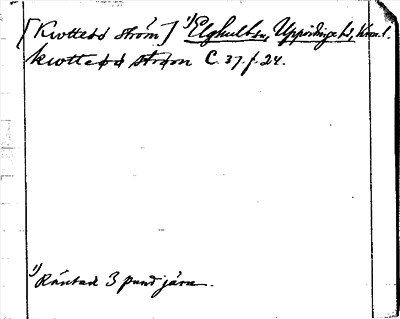 [Kvottebo ström] ¹) Elghult sn, Uppvidinge hd, Kron. l.
kvottebo ström C. 37. f. 24.
¹) Räntad 3 pund järn.